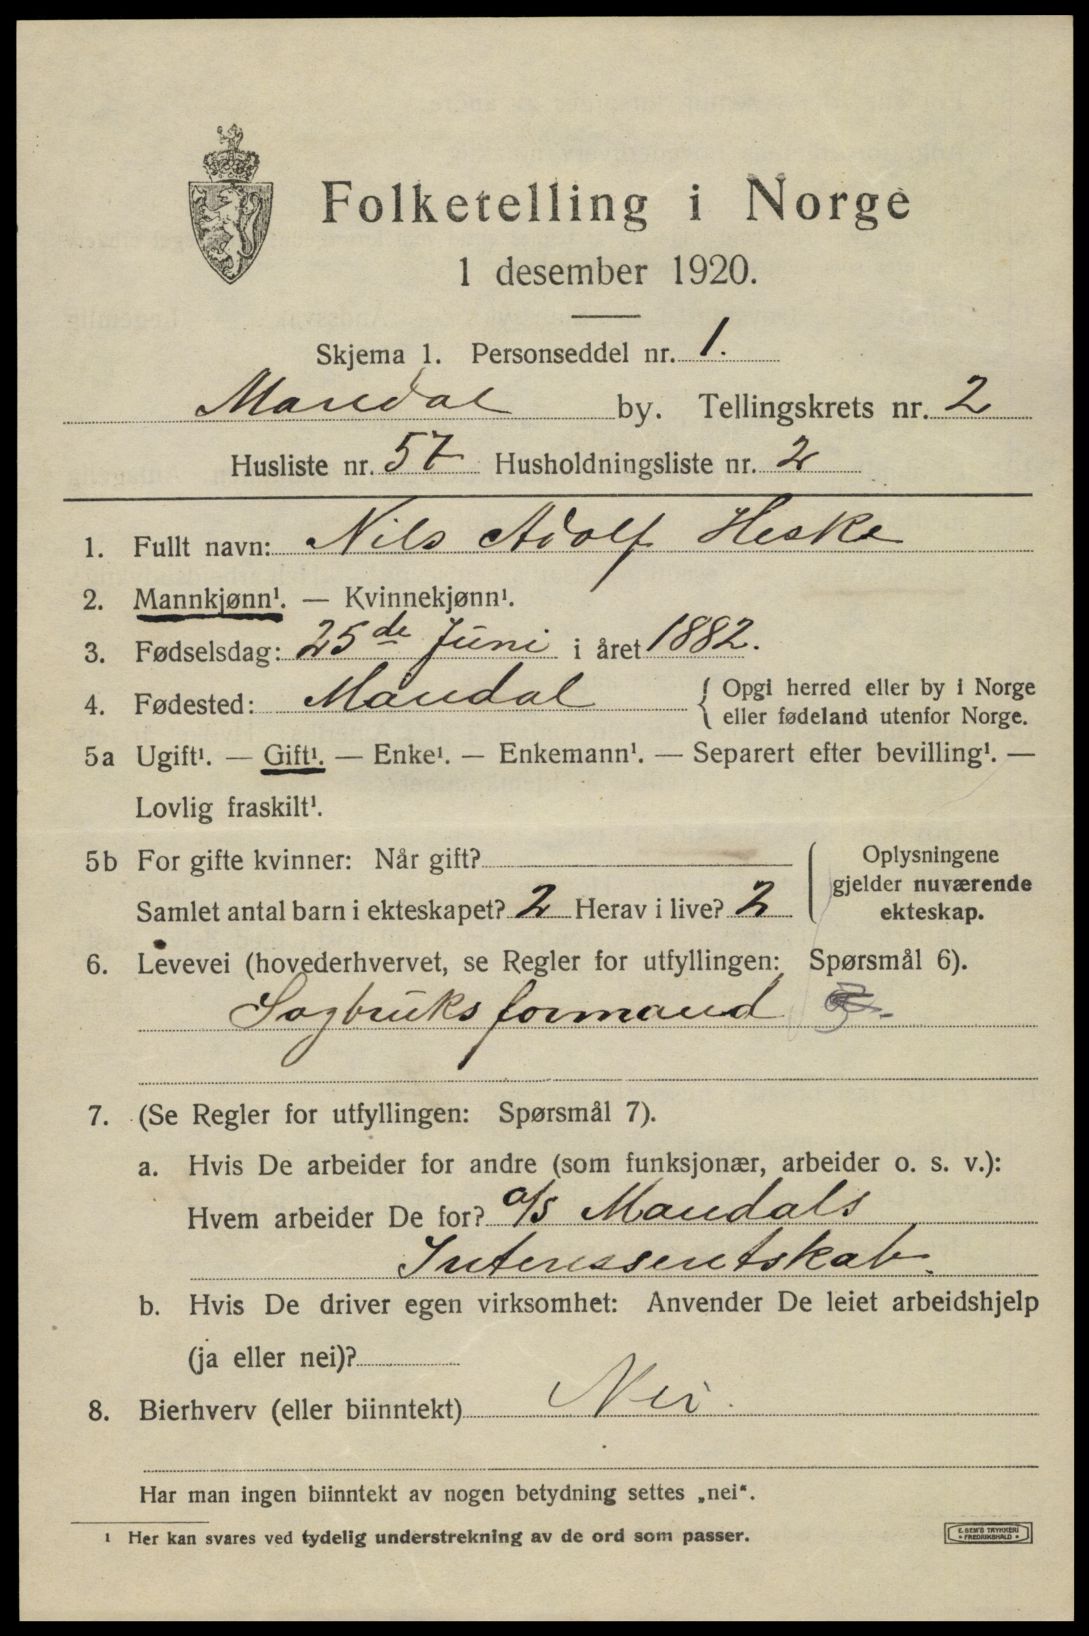 Folketelling i Norge
1 desember 1920.
Skjema 1. Personseddel nr. 1.
Mandal by. Tellingskrets nr. 2
Husliste nr. 57 Husholdningsliste nr. 2
1. Fullt navn: Nils Adolf Heske
2. Mannkjønn¹. — Kvinnekjønn¹.
3. Fødselsdag: 25de Juni i året 1882.
4. Fødested: Mandal { Opgi herred eller by i Norge
eller fødeland utenfor Norge.
5a Ugift¹. — Gift¹. — Enke¹. — Enkemann¹. — Separert efter bevilling¹. —
Lovlig fraskilt¹.
5b For gifte kvinner: Når gift?
Samlet antal barn i ekteskapet? 2 Herav i live? 2
Oplysningene
gjelder nuværende
ekteskap.
6. Levevei (hovederhvervet, se Regler for utfyllingen: Spørsmål 6).
Sagbruksformand
7. (Se Regler for utfyllingen: Spørsmål 7).
a. Hvis De arbeider for andre (som funksjonær, arbeider o. s. v.):
Hvem arbeider De for? a/s Mandals
Interessentskab.
b. Hvis De driver egen virksomhet: Anvender De leiet arbeidshjelp
(ja eller nei)?
8. Bierhverv (eller biinntekt) Nei.
Har man ingen biinntekt av nogen betydning settes „nei“.
¹ Her kan svares ved tydelig understrekning av de ord som passer.
E. SEM'S TRYKKERI
• FREDRIKSHALD •